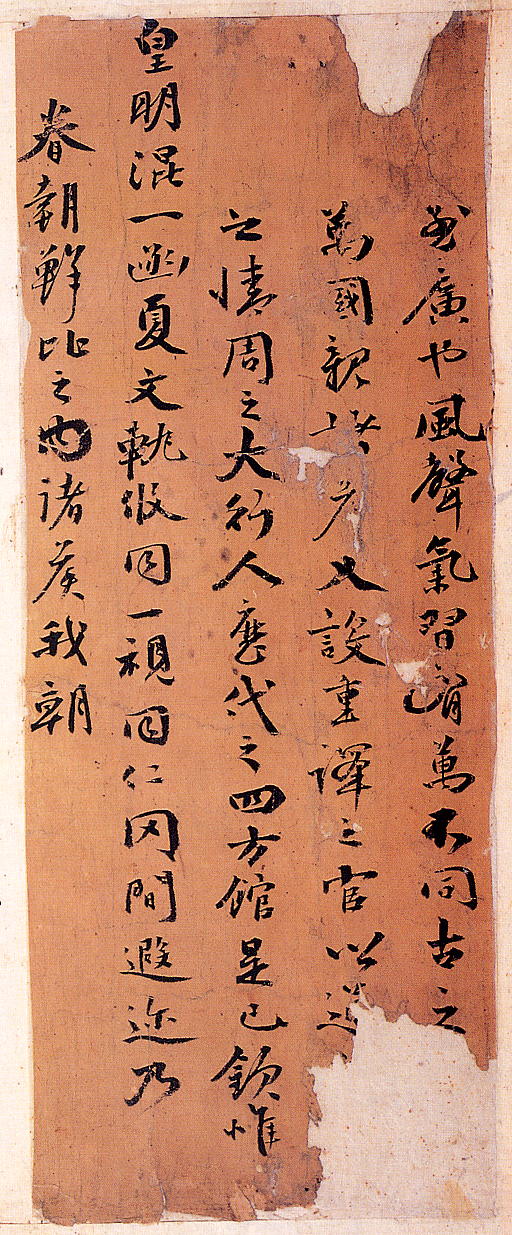 廣也風聲氣習萬不同古之
萬國親又設重譯之官以
之情周之大行人歷代之四方館是已欽惟
皇明混一函夏文軌攸同一視同仁罔間遐迩乃
眷朝鮮比之内諸侯我朝